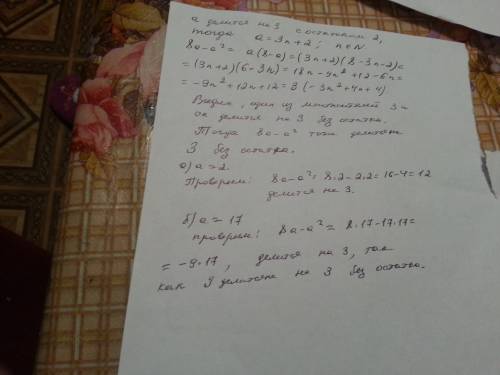 a делится на 3 с остатком 2,
тогда a=3n+2; n∈N.
8a-a²= a(8-a)=(3n+2)(8-3n-2)=
=(3n+2)(6-3n)=18n-9n²+12-6n=
=-9n²+12n+12=3(-3n²+4n+4)
Видим, один из множителей 3 -
он делится на 3 без остатка.
Тогда 8a-a² тоже делится
3 без остатка.
а) a=2.
Проверим: 8a-a²=8·2-2·2=16-4=12
делится на 3.
б) a=17
проверим: 8a-a²=8·17-17·17=
=-9·17, делится на 3, так
как 9 делится на 3 без остатка.